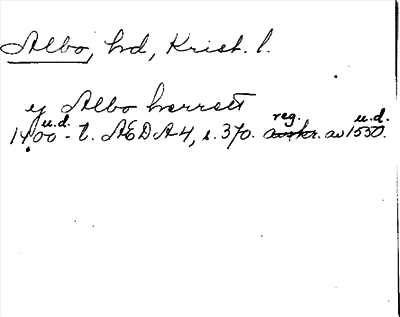 Albo, hd, Krist. l.
y Albo herrett
u.d. reg. u.d.
1400-t. ÆDA4, s. 370. avskr. av 1550.